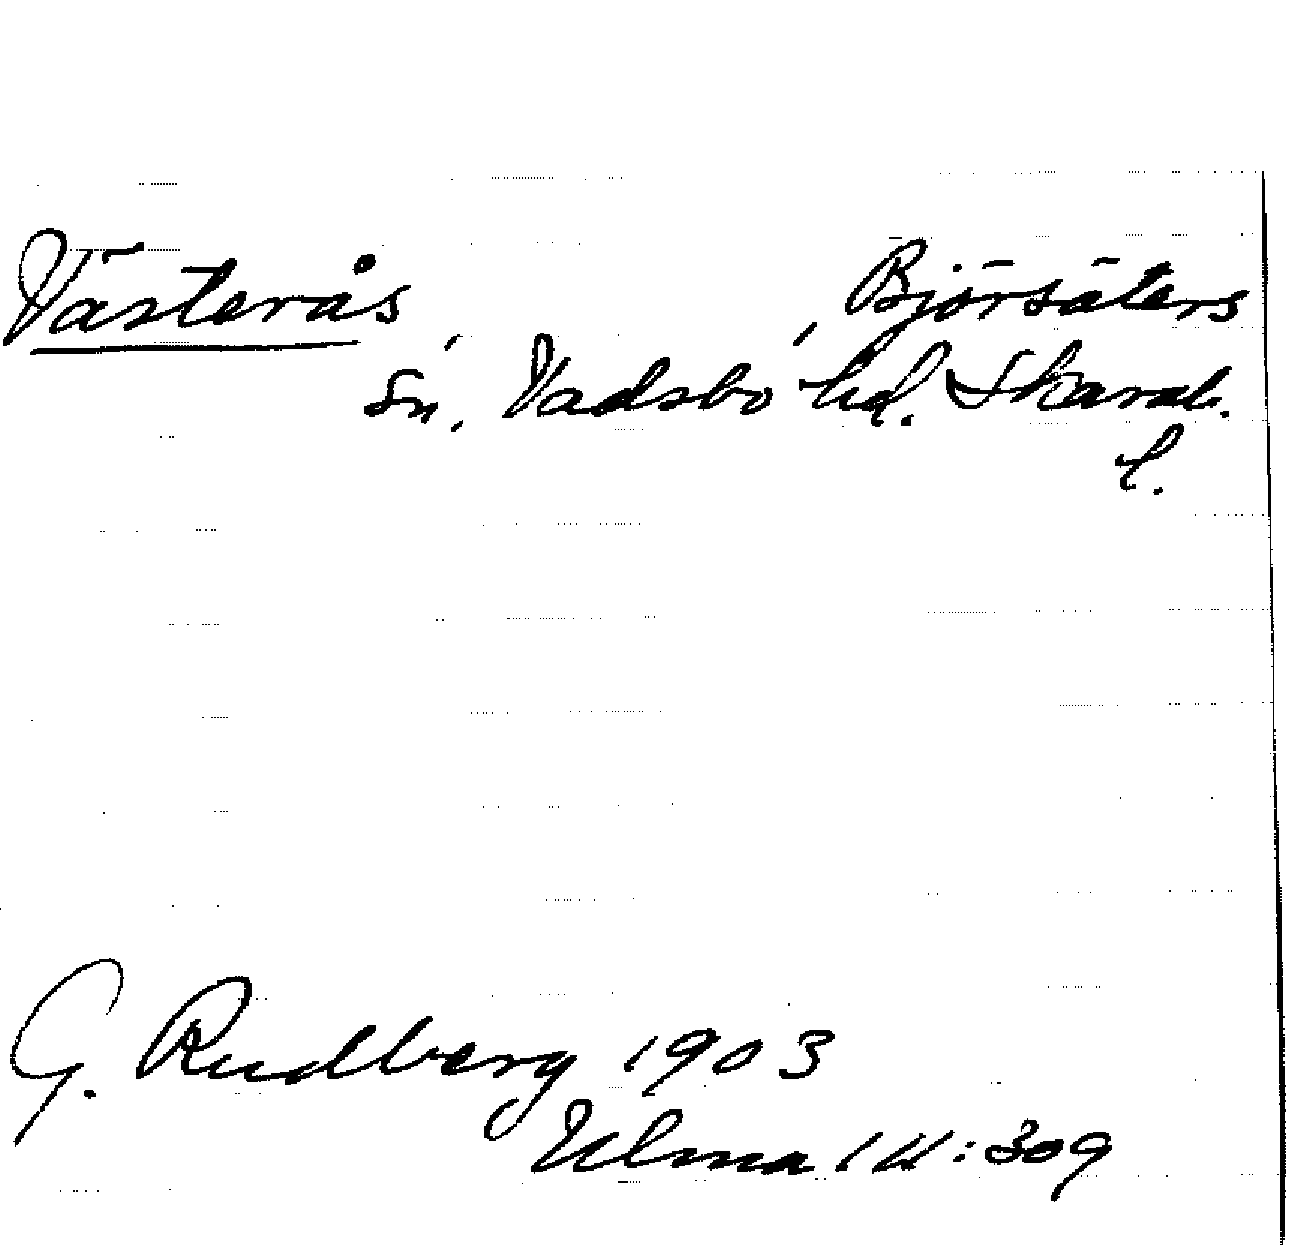 Västerås, Björsäters
sn, Vadsbo hd. Skarab.
l.
G. Rudberg 1903
Ulma 14:309